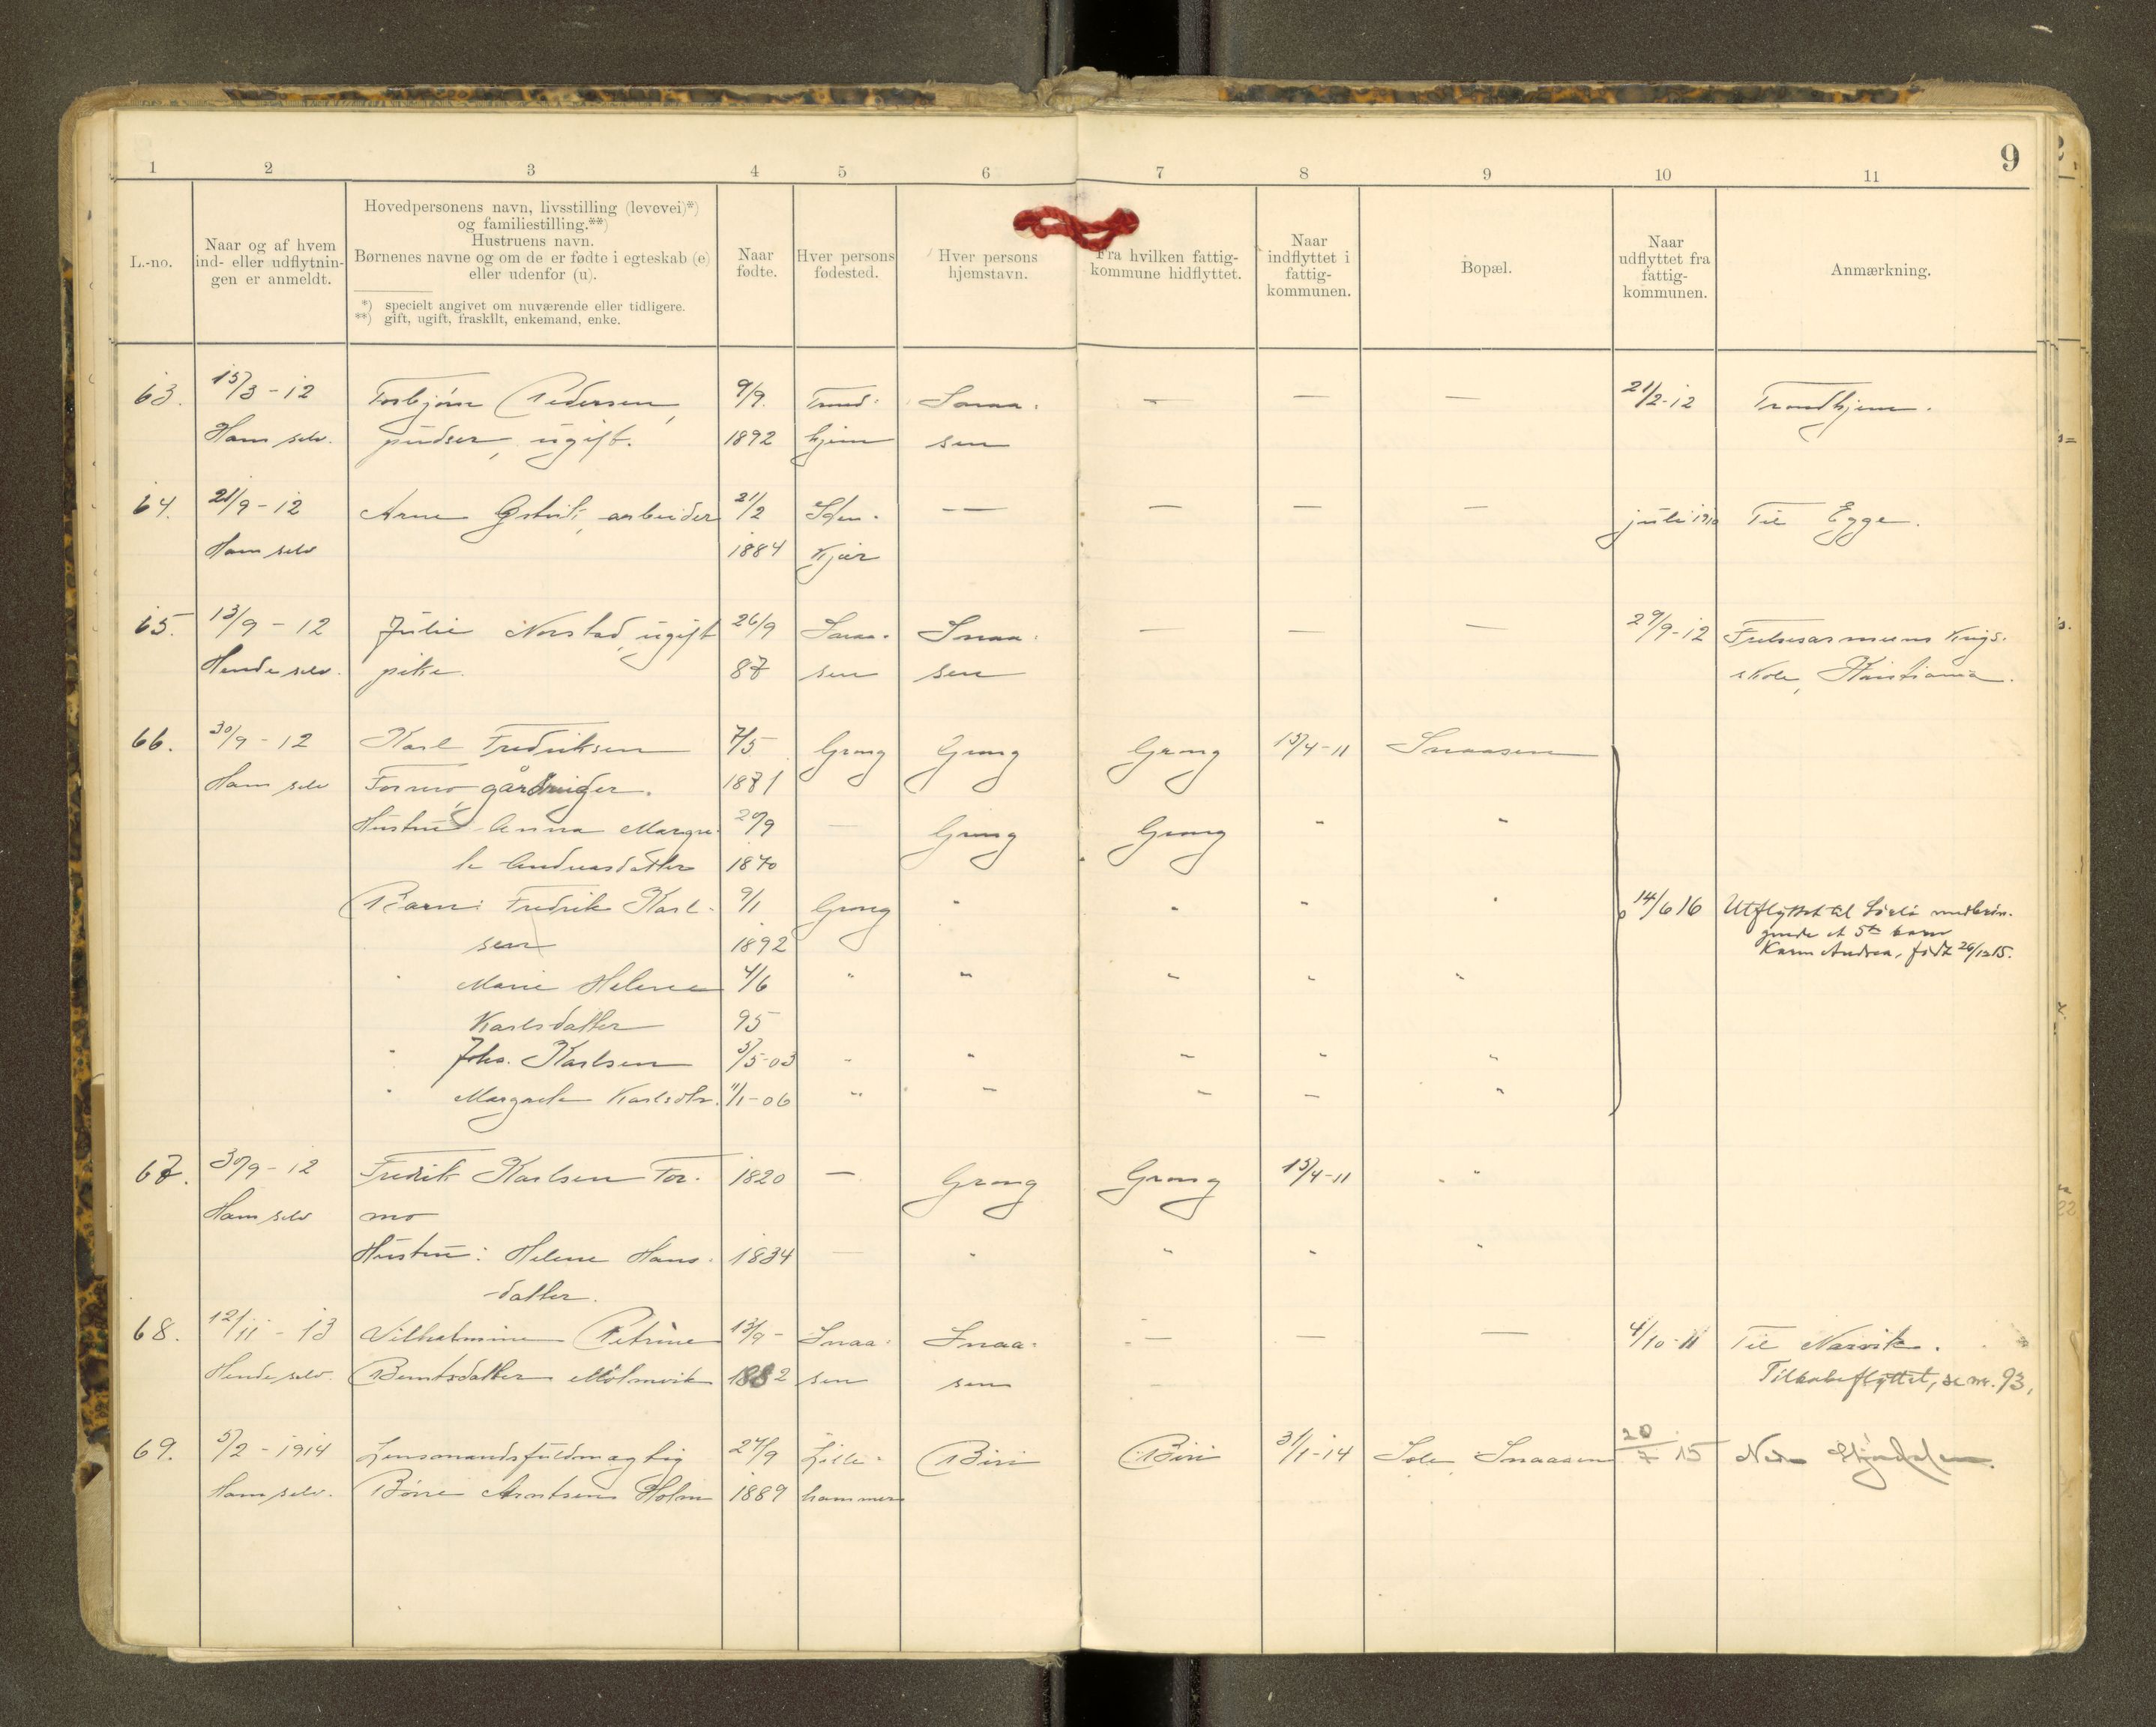 9
1 2 3 4 5 6 7 8 9 10 11
L.-no.
Naar og af hvem
ind- eller udflytnin-
gen er anmeldt.
Hovedpersonens navn, livsstilling (levevei)*)
og familiestilling.**)
Hustruens navn.
Børnenes navne og om de er fødte i egteskab (e)
eller udenfor (u).
*) specielt angivet om nuværende eller tidligere.
**) gift, ugift, fraskilt, enkemand, enke.
Naar
fødte.
Hver persons
fødested.
Hver persons
hjemstavn.
Fra hvilken fattig-
kommune hidflyttet.
Naar
indflyttet i
fattig-
kommunen.
Bopæl.
Naar
udflyttet fra
fattig-
kommunen.
Anmærkning.
63. 15/3-12 Torbjørn Pedersen, 9/9. Trond- Snaa- — — — 21/2-12 Trondhjem.
Ham selv. pudser, ugift. 1892 hjem sen
64. 21/9-12 Arne arbeider 21/2 Sten- — — — — juli 1910 Til Egge.
Ham selv 1884 kjær
65. 13/9-12 Julie Norstad, ugift 26/9 Snaa- Snaa- — — — 29/9-12 Frelsesarmeens Krigs-
Hende selv. pike. 87 sen sen skole, Kristiania.
66. 30/9-12 Karl Fredriksen 7/5 Grong Grong Grong 15/4-11 Snaasen
Ham selv Formo, gårdbruger. 1871
Hustru Anna Margre- 20/9 — Grong Grong " "
te Andreasdatter 1870
Barn: Fredrik Karl- 9/1 Grong " " " " 14/6 16 Utflyttet til Sørli medbrin-
sen 1892 gende et 5te barn
Karen Andrea, født 26/12 15.
" Marie Helene 4/6 " " " " "
Karlsdatter 95
" Johs. Karlsen 5/5-03 " " " " "
" Margrete Karlsdtr. 11/1-06 " " " " "
67. 30/9-12 Fredrik Karlsen For- 1820 — Grong Grong 15/4-11 "
Ham selv mo
Hustru: Helene Hans- 1834 — " " " "
-datter.
68. 12/11-13 Vilhelmine Petrine 13/9- Snaa- Snaa- — — — 4/10-11 Til Narvik.
Hende selv. Berntsdatter Holmvik 1882 sen sen Tilbakeflyttet, se nr. 93.
69. 5/2-1914 Lensmandsfuldmægtig 27/9 Lille- Biri Biri 31/1-14 Sole, Snaasen 20/7 15 Nedre Stjørdalen.
Ham selv. Børre Arntsen Holm 1889 hammer